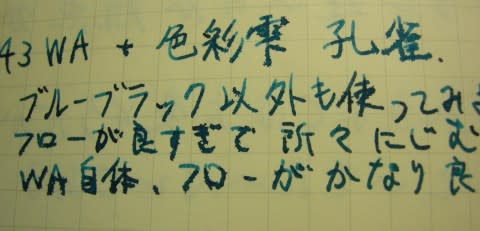 43 WA + 色彩雫 孔雀.
ブルーブラック以外も使ってみ
フローが良すぎで 所々ににじむ
WA自体、フローがかなり良